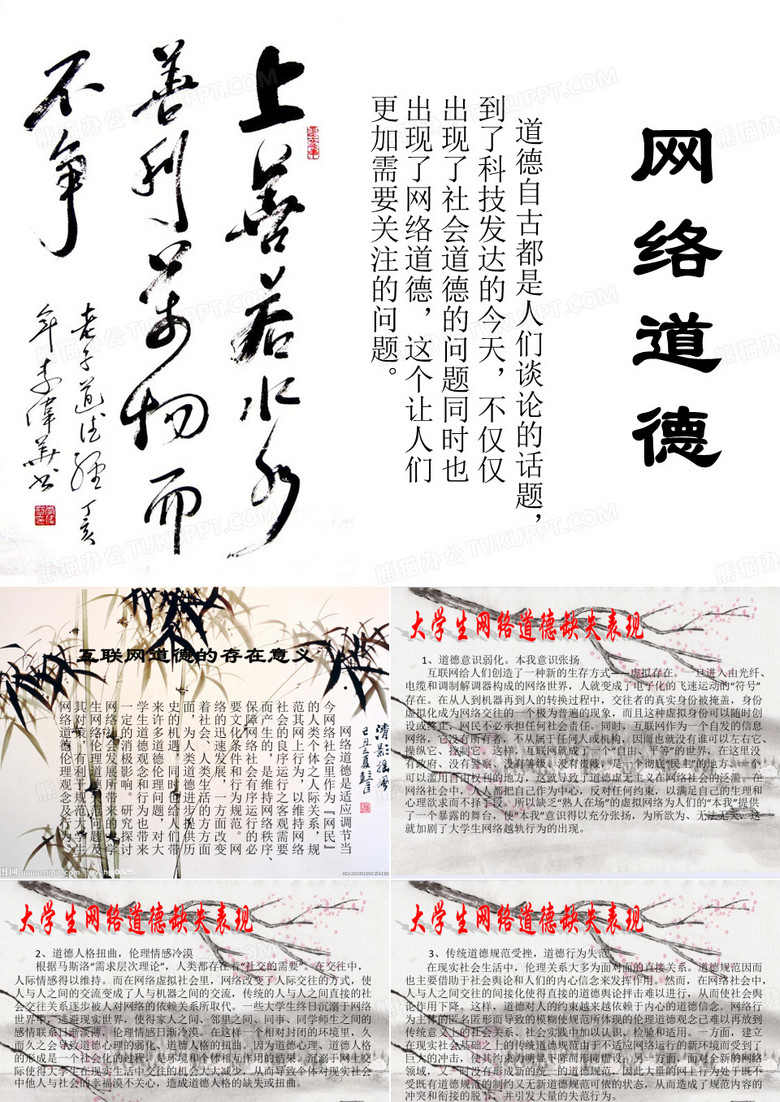 网络道德
道德自古都是人们谈论的话题，
到了科技发达的今天，不仅仅
出现了社会道德的问题同时也
出现了网络道德，这个让人们
更加需要关注的问题。
上善若水水
善利万物而
不争
老子道德经 丁亥
年李伟兵书
互联网道德的存在意义
网络道德是适应调节当
今网络社会里作为『网民』
的人类个体之人际关系、规
范其网上行为，以维持网络
社会的良序运行之客观需要
而产生的，是维持网络秩序、
保障网络社会有序运行的必
要文化条件和行为规范。网
络的迅速发展，一方面改变
着社会、人类生活的方方面
面，为人类道德进步提供历
史的机遇，同时也给人们带
来许多道德伦理问题，对大
学生道德观念和行为也带来
一定的消极影响。研究探讨
网络社会发展所带来的大学
生网络伦理道德失范问题及
其对策，有利于规范大学生
网络道德伦理观念及行为。
大学生网络道德缺失表现
1、道德意识弱化。本我意识张扬
互联网给人们创造了一种新的生存方式——虚拟存在。一旦进入由光纤、
电缆和调制解调器构成的网络世界，人就变成了电子化的飞速运动的“符号”
存在。在从人到机器再到人的转换过程中，交往者的真实身份被掩盖，身份
虚拟化成为网络交往的一个极为普遍的现象，而且这种虚拟身份可以随时创
设或终止，网民不必承担任何社会责任。同时，互联网作为一个自发的信息
网络，它没有所有者，不从属于任何人或机构，因而也就没有谁可以左右它、
操纵它、控制它。这样，互联网就成了一个“自由、平等”的世界，在这里没
有政府、没有警察、没有等级、没有贵贱，是一个彻底“民主”的地方，一个
可以滥用自由权利的地方，这就导致了道德虚无主义在网络社会的泛滥。在
网络社会中，人人都把自己作为中心，反对任何约束，以满足自己的生理和
心理欲求而不择手段。所以缺乏“熟人在场”的虚拟网络为人们的“本我”提供
了一个暴露的舞台，使“本我”意识得以充分张扬，为所欲为、无法无天，这
就加剧了大学生网络越轨行为的出现。
大学生网络道德缺失表现
2、道德人格扭曲，伦理情感冷漠
根据马斯洛“需求层次理论”，人类都存在着“社交的需要”。在交往中，
人际情感得以维持。而在网络虚拟社会里，网络改变了人际交往的方式，使
人与人之间的交流变成了人与机器之间的交流，传统的人与人之间直接的社
会交往关系逐步被人对网络的依赖关系所取代。一些大学生终日沉溺于网络
世界中，逃避现实世界，使得家人之间、邻里之间、同事、同学师生之间的
感情联系日渐淡薄，伦理情感日渐冷漠。在这样一个相对封闭的环境里，久
而久之会导致道德心理的弱化、道德人格的扭曲，因为道德心理、道德人格
的形成是一个社会化的过程，是环境和个体相互作用的结果，沉溺于网上交
际使得大学生在现实生活中交往的机会大大减少，从而导致个体对现实社会
中他人与社会的幸福漠不关心，造成道德人格的缺失或扭曲。
大学生网络道德缺失表现
3、传统道德规范受挫，道德行为失范
在现实社会生活中，伦理关系大多为面对面的直接关系。道德规范因而
也主要借助于社会舆论和人们的内心信念来发挥作用。然而，在网络社会中，
人与人之间交往的间接化使得直接的道德舆论抨击难以进行，从而使社会舆
论作用下降。这样，道德对人的约束越来越依赖于内心的道德信念。网络行
为主体的匿名匿形而导致的模糊使规范所体现的伦理道德观念已难以再放到
传统意义上的社会关系、社会实践中加以认识、检验和适用。一方面，建立
在现实社会基础之上的传统道德规范由于不适应网络运行的新环境而受到了
巨大的冲击，使其约束力明显下降而形同虚设；另一方面，面对全新的网络
领域，又一时没有形成新的统一的道德规范，因此大量的网上行为处于既不
受既有道德规范的制约又无新道德规范可依的状态，从而造成了规范内容的
冲突和衔接的脱节，并引发大量的失范行为。